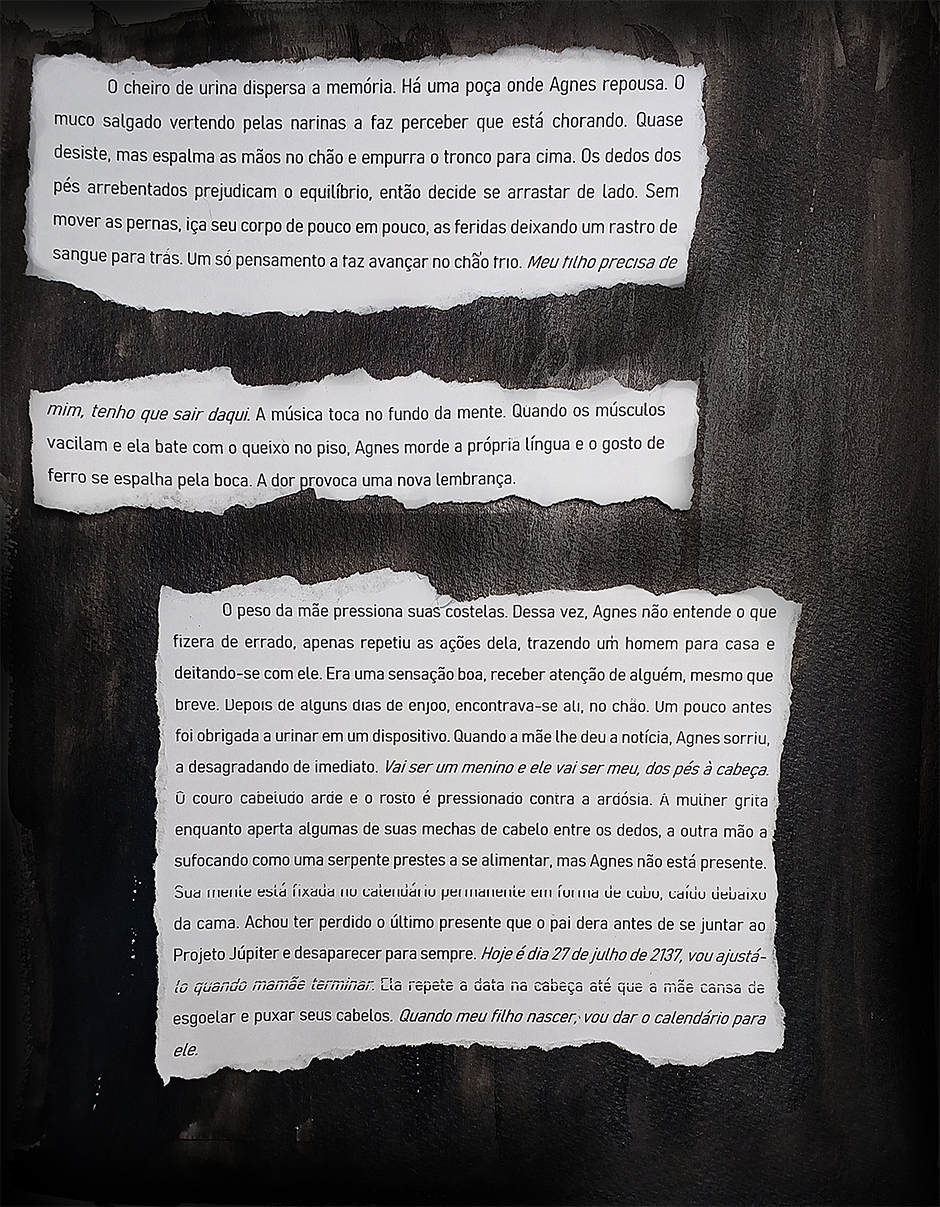 O cheiro de urina dispersa a memória. Há uma poça onde Agnes repousa. O
muco salgado vertendo pelas narinas a faz perceber que está chorando. Quase
desiste, mas espalma as mãos no chão e empurra o tronco para cima. Os dedos dos
pés arrebentados prejudicam o equilíbrio, então decide se arrastar de lado. Sem
mover as pernas, iça seu corpo de pouco em pouco, as feridas deixando um rastro de
sangue para trás. Um só pensamento a faz avançar no chão frio. Meu filho precisa de
mim, tenho que sair daqui. A música toca no fundo da mente. Quando os músculos
vacilam e ela bate com o queixo no piso, Agnes morde a própria língua e o gosto de
ferro se espalha pela boca. A dor provoca uma nova lembrança.
O peso da mãe pressiona suas costelas. Dessa vez, Agnes não entende o que
fizera de errado, apenas repetiu as ações dela, trazendo um homem para casa e
deitando-se com ele. Era uma sensação boa, receber atenção de alguém, mesmo que
breve. Depois de alguns dias de enjoo, encontrava-se ali, no chão. Um pouco antes
foi obrigada a urinar em um dispositivo. Quando a mãe lhe deu a notícia, Agnes sorriu,
a desagradando de imediato. Vai ser um menino e ele vai ser meu, dos pés à cabeça.
O couro cabeludo arde e o rosto é pressionado contra a ardósia. A mulher grita
enquanto aperta algumas de suas mechas de cabelo entre os dedos, a outra mão a
sufocando como uma serpente prestes a se alimentar, mas Agnes não está presente.
Sua mente está fixada no calendário permanente em forma de cubo, caído debaixo
da cama. Achou ter perdido o último presente que o pai dera antes de se juntar ao
Projeto Júpiter e desaparecer para sempre. Hoje é dia 27 de julho de 2137, vou ajustá-
lo quando mamãe terminar. Ela repete a data na cabeça até que a mãe cansa de
esgoelar e puxar seus cabelos. Quando meu filho nascer, vou dar o calendário para
ele.